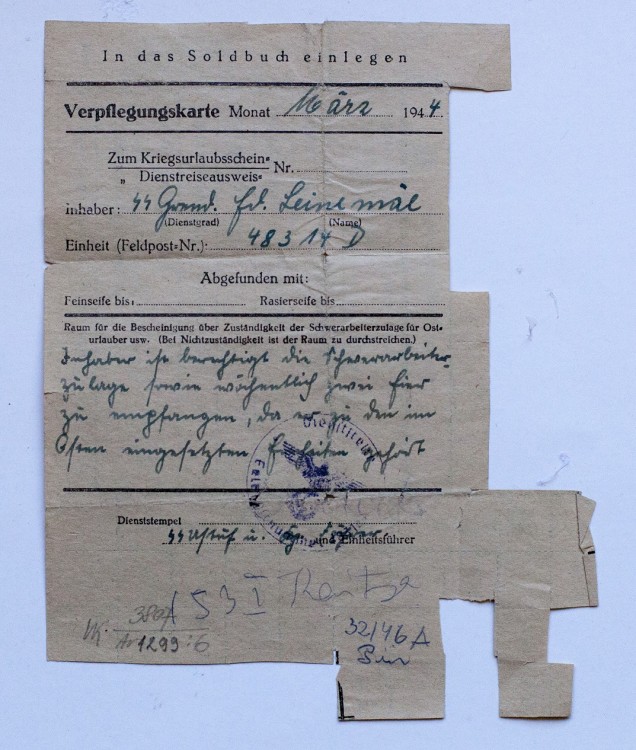 In das Soldbuch einlegen
Verpflegungskarte Monat März 1944.
Zum Kriegsurlaubsschein= Nr.
„ Dienstreiseausweis=
inhaber: SS Grend. Fd. Leinemäl
(Dienstgrad) (Name)
Einheit (Feldpost=Nr.): 48314 D
Abgefunden mit:
Feinseife bis: Rasierseife bis
Raum für die Bescheinigung über Zuständigkeit der Schwerarbeiterzulage für Ost-
urlauber usw. (Bei Nichtzuständigkeit ist der Raum zu durchstreichen.)
Inhaber ist berechtigt die Schwerarbeiter-
zulage sowie wöchentlich zwei Eier
zu empfangen, da er zu den im
Osten eingesetzten Einheiten gehört
Dienststempel
SS Ustuf u. und Einheitsführer
153 I
3807
1299:6
32/46 A